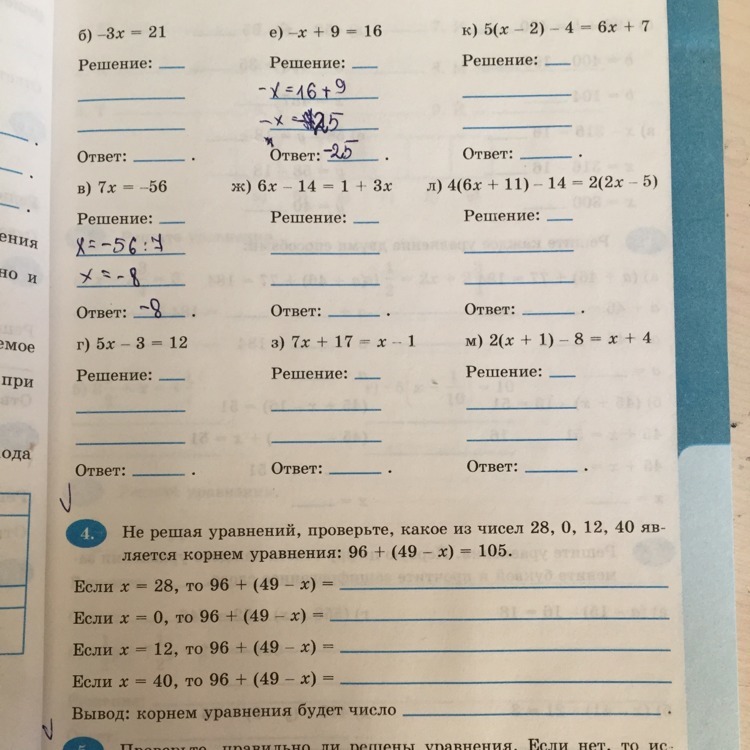 б) –3x = 21
Решение:
Ответ: .
е) –x + 9 = 16
Решение:
-x=16+9
-x=25
Ответ: -25 .
к) 5(x – 2) – 4 = 6x + 7
Решение:
Ответ: .
в) 7x = –56
Решение:
x=-56:7
x=-8
Ответ: -8 .
ж) 6x – 14 = 1 + 3x
Решение:
Ответ: .
л) 4(6x + 11) – 14 = 2(2x – 5)
Решение:
Ответ: .
г) 5x – 3 = 12
Решение:
Ответ: .
з) 7x + 17 = x – 1
Решение:
Ответ: .
м) 2(x + 1) – 8 = x + 4
Решение:
Ответ: .
ения
но и
емое
при
ода
4. Не решая уравнений, проверьте, какое из чисел 28, 0, 12, 40 яв-
ляется корнем уравнения: 96 + (49 – x) = 105.
Если x = 28, то 96 + (49 – x) =
Если x = 0, то 96 + (49 – x) =
Если x = 12, то 96 + (49 – x) =
Если x = 40, то 96 + (49 – x) =
Вывод: корнем уравнения будет число .
5. Проверьте, правильно ли решены уравнения. Если нет, то ис-